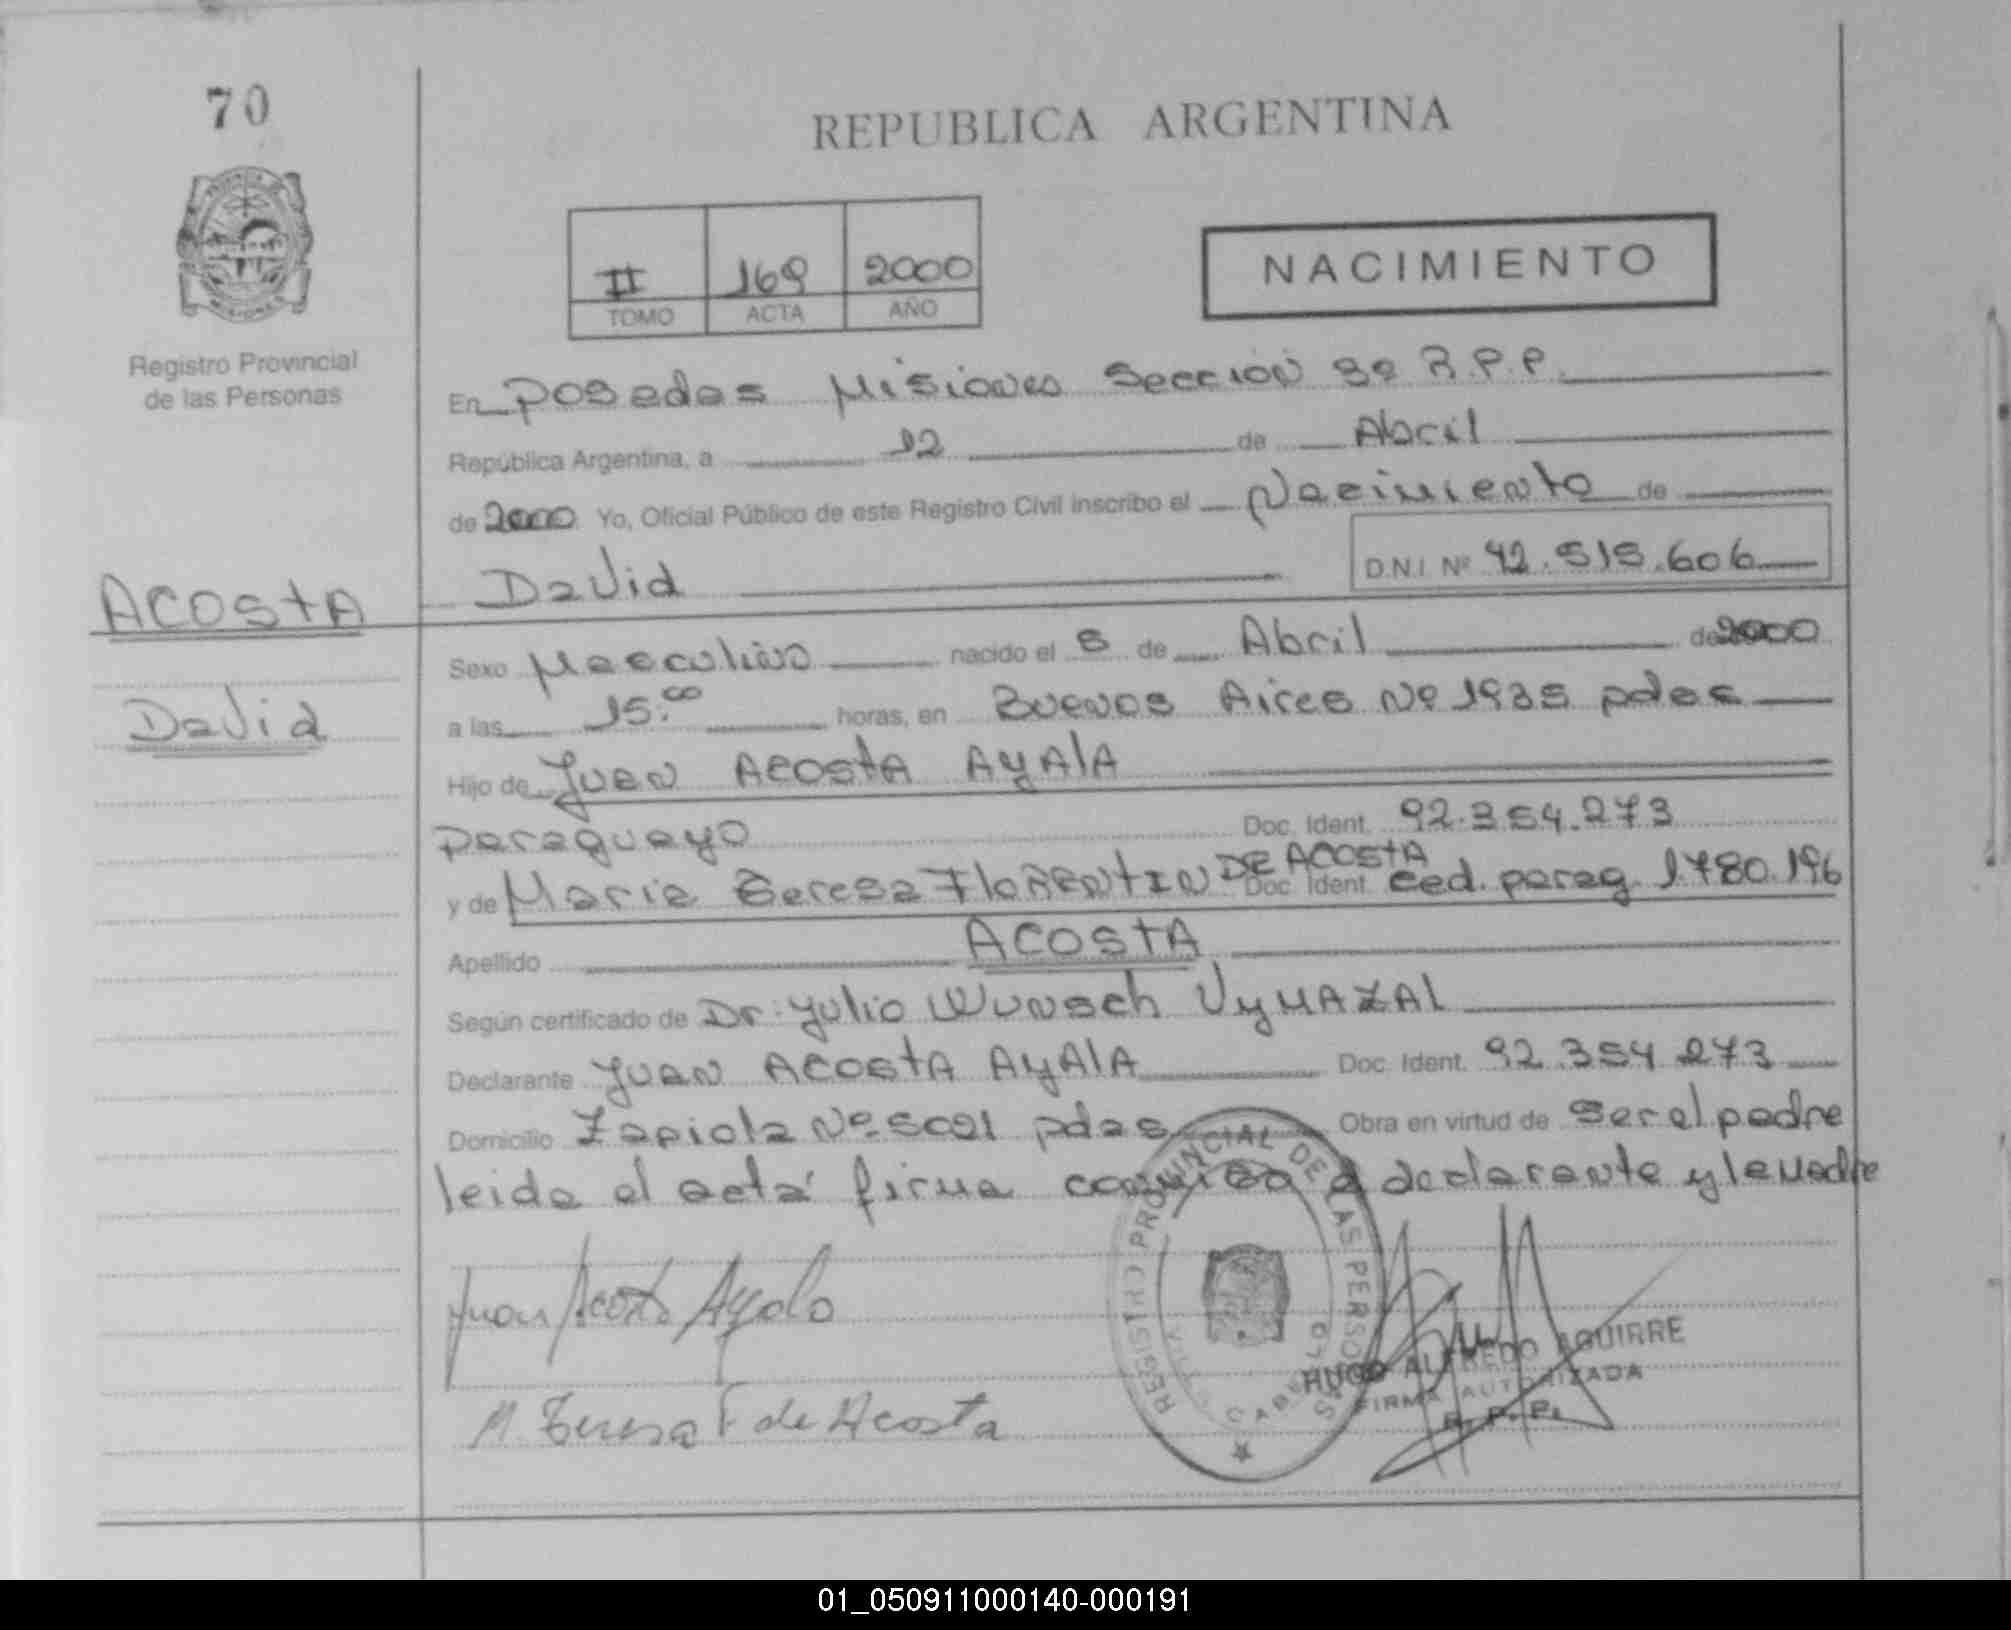 70
REPUBLICA ARGENTINA
II 169 2000
TOMO ACTA AÑO
NACIMIENTO
Registro Provincial
de las Personas
En Posadas Misiones Sección 3º R.P.P.
República Argentina, a 12 de Abril
de 2000 Yo, Oficial Público de este Registro Civil inscribo el Nacimiento de
David D.N.I. Nº 42.515.606
ACOSTA
David
Sexo Masculino nacido el 5 de Abril de 2000
a las 15.00 horas, en Buenos Aires Nº 1935 pdas
Hijo de Juan ACOSTA AYALA
paraguayo Doc. Ident. 92.354.273
y de Maria Teresa FLORENTIN DE ACOSTA Doc. Ident. Ced. parag. 1.780.196
Apellido ACOSTA
Según certificado de Dr. Julio Wunsch VyMAZAL
Declarante Juan ACOSTA AYALA Doc. Ident. 92.354.273
Domicilio Zapiola Nº 5091 pdas Obra en virtud de ser el padre
leida el acta firma conmigo el declarante y la madre
Juan Acosta Ayala
M. Teresa F. de Acosta
REGISTRO PROVINCIAL DE LAS PERSONAS
VILLA CABELLO
HUGO ALFREDO AGUIRRE
FIRMA AUTORIZADA
R. P. P.
01_050911000140-000191